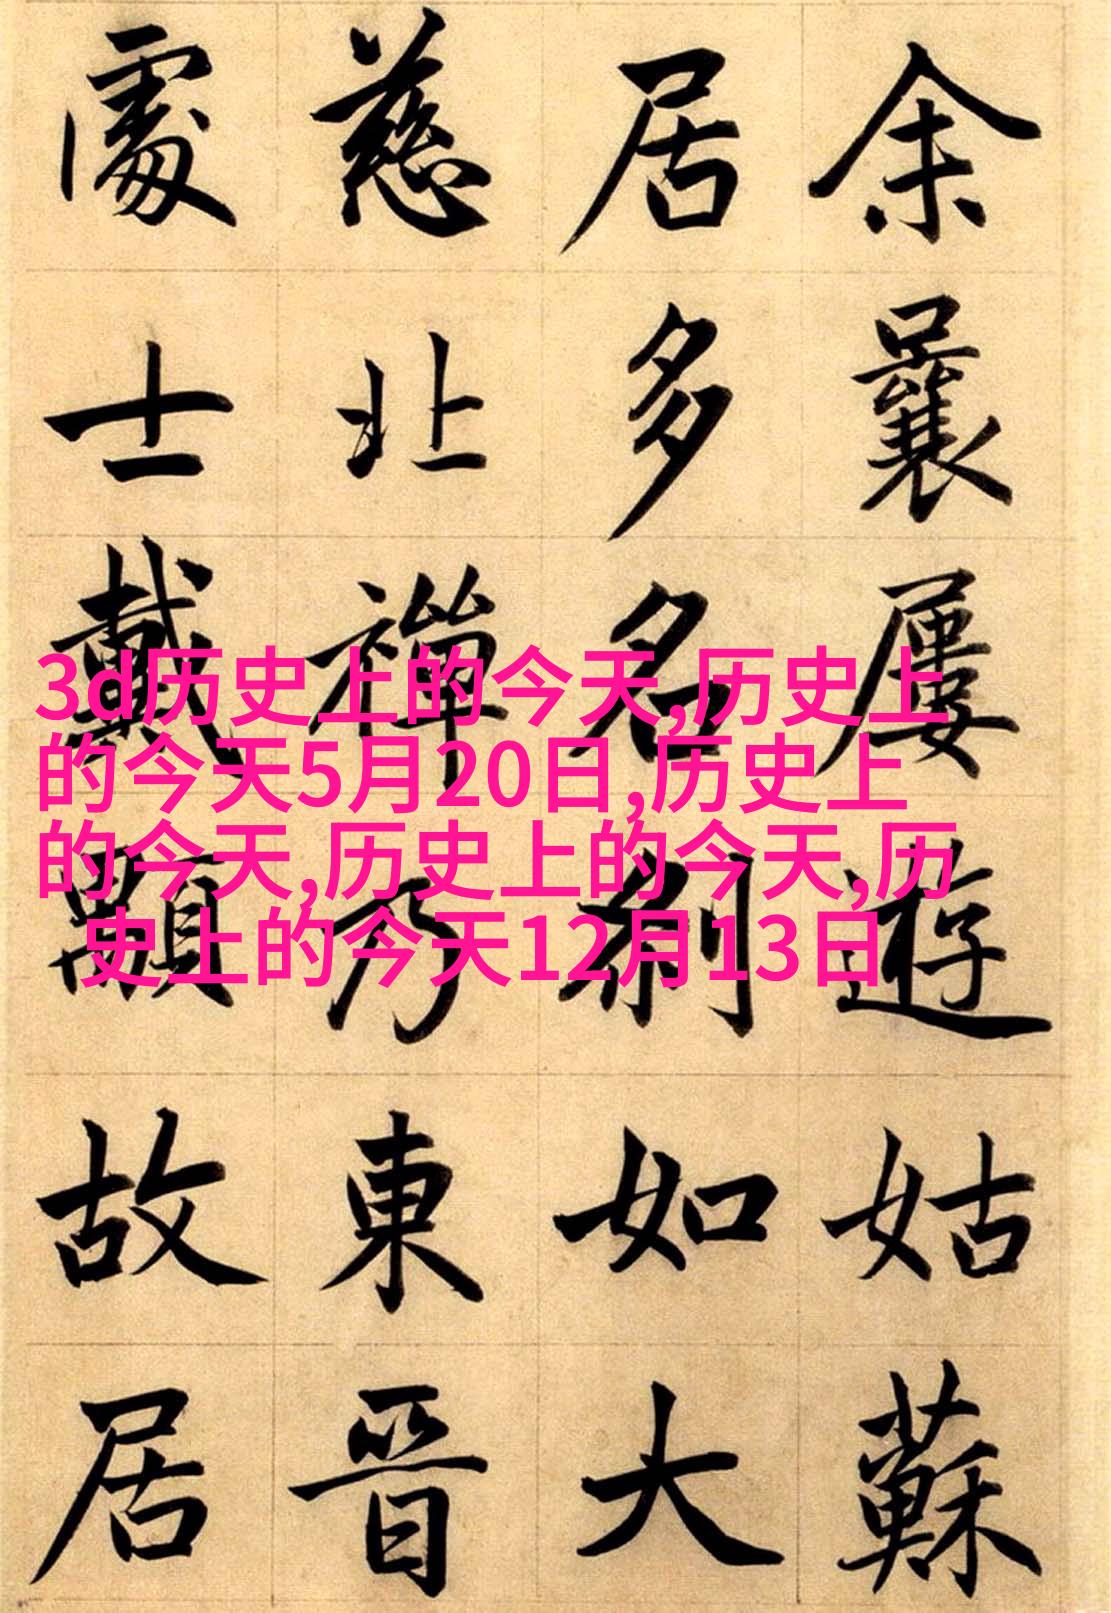 余曩屢遊姑蘇
居多名刹如大
慈北禪乃東晉
處士戴顒故居
3d历史上的今天,历史上
的今天5月20日,历史上
的今天,历史上的今天,历
史上的今天12月13日